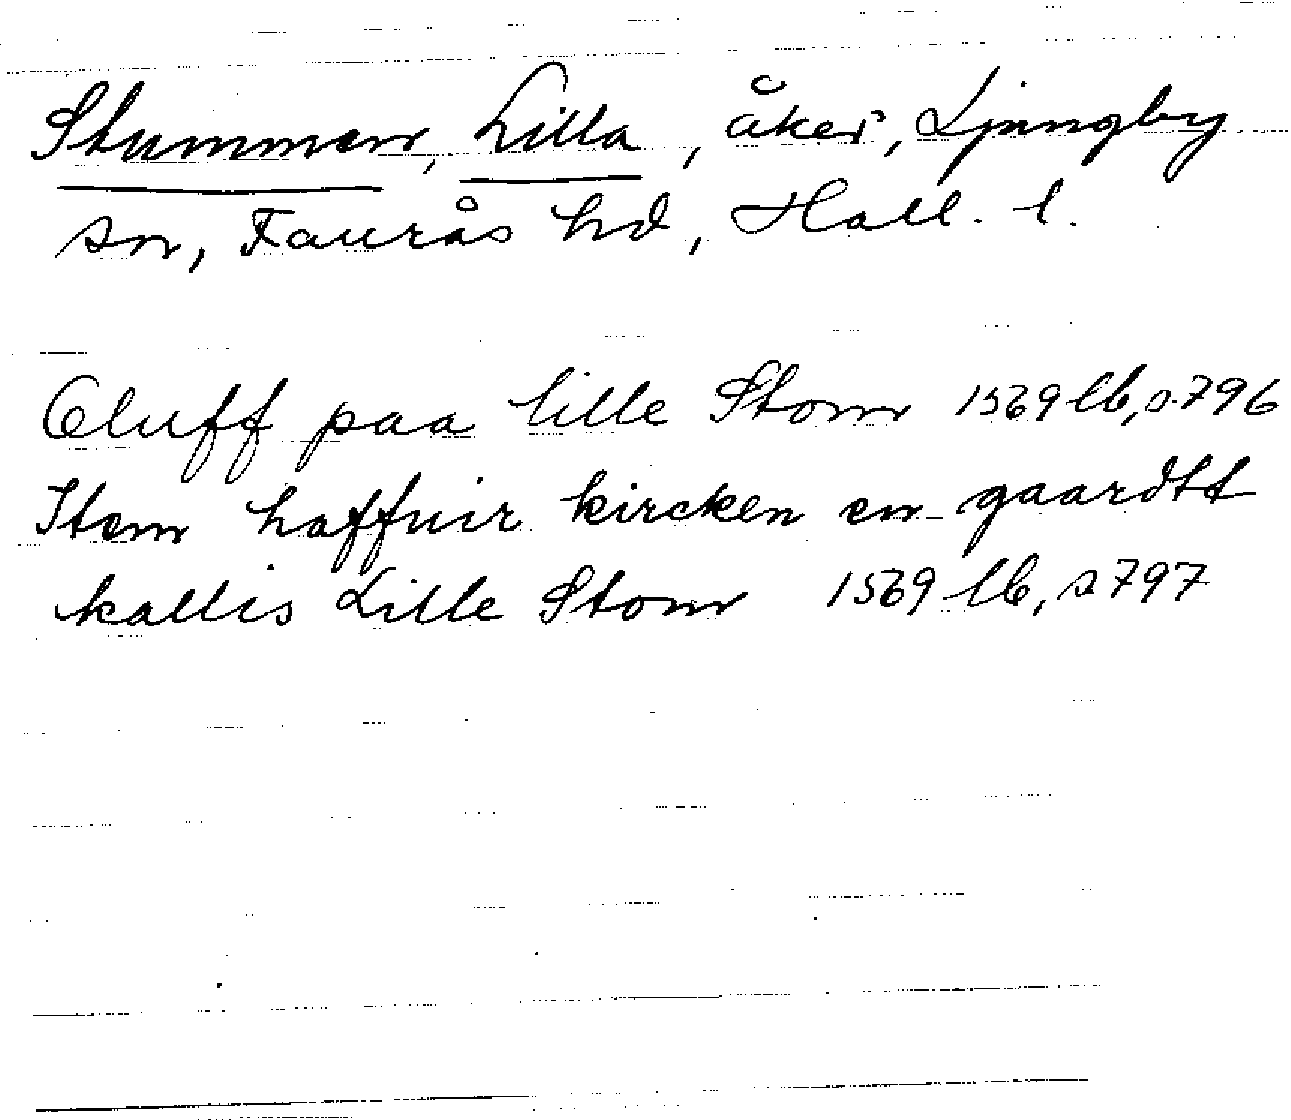 Stummen, Lilla, åker, Ljungby
sn, Faurås hd, Hall. l.
Oluff paa lille Stom 1569 lb, s. 796
Item haffuir kircken en gaardtt
kallis Lille Stom 1569 lb, s 797